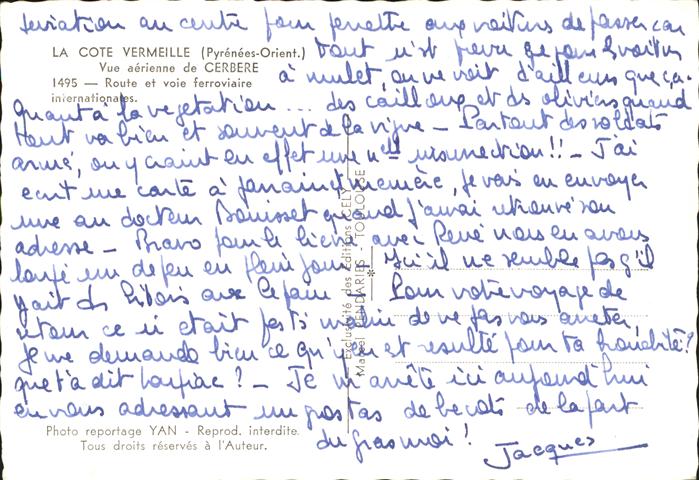 deviation au centre pour permettre aux voitures de passer car
LA COTE VERMEILLE (Pyrénées-Orient.)
Vue aérienne de CERBERE
1495 — Route et voie ferroviaire
internationales.
tout n'est prevu que pour voitures
à mulet, on ne voit d'ailleurs que ça.
Quant à la vegetation ... des cailloux et des oliviers quand
tout va bien et souvent de la vigne — Partout des soldats
armé, on y craint en effet une nlle insurrection!! — J'ai
ecrit une carte à et mémère, je vais en envoyer
une au docteur quand j'aurai retrouvé son
adresse — Bravo pour le avec René nous en avons
un de feu en plein jour ici il ne semble pas qu'il
y ait des Pour votre voyage de
retour ce n'était pas de ne pas vous arreter,
Je me demande bien ce qu'il en est resulté pour ta
que t'a dit ? — Je m'arrête ici aujourd'hui
en vous adressant un gros tas de becots de la part
du gros moi!
Jacques
Exclusivité des Editions CELY
Marcel PENDARIES - TOULOUSE
Photo reportage YAN - Reprod. interdite.
Tous droits réservés à l'Auteur.